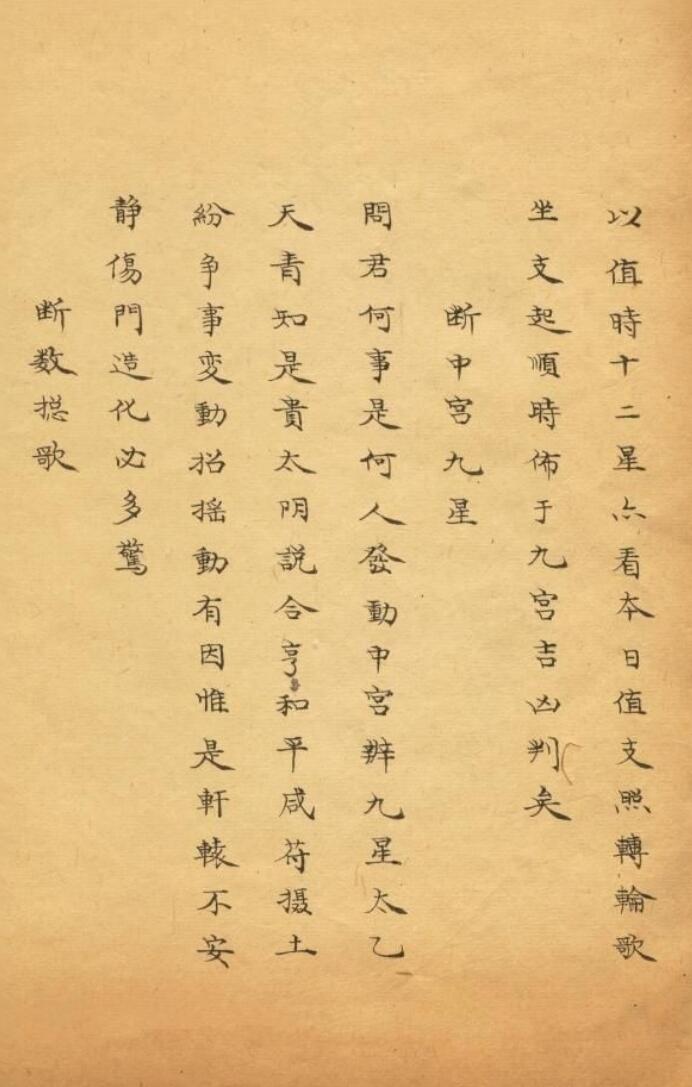 以值時十二星六看本日值支照轉輪歌
坐支起順時佈于九宮吉凶判矣
断中宮九星
問君何事是何人發動中宮辨九星太乙
天青知是貴太阴説合亨和平咸苻摄土
紛争事変動招摇動有因惟是軒轅不安
静傷門造化必多驚
断数揔歌